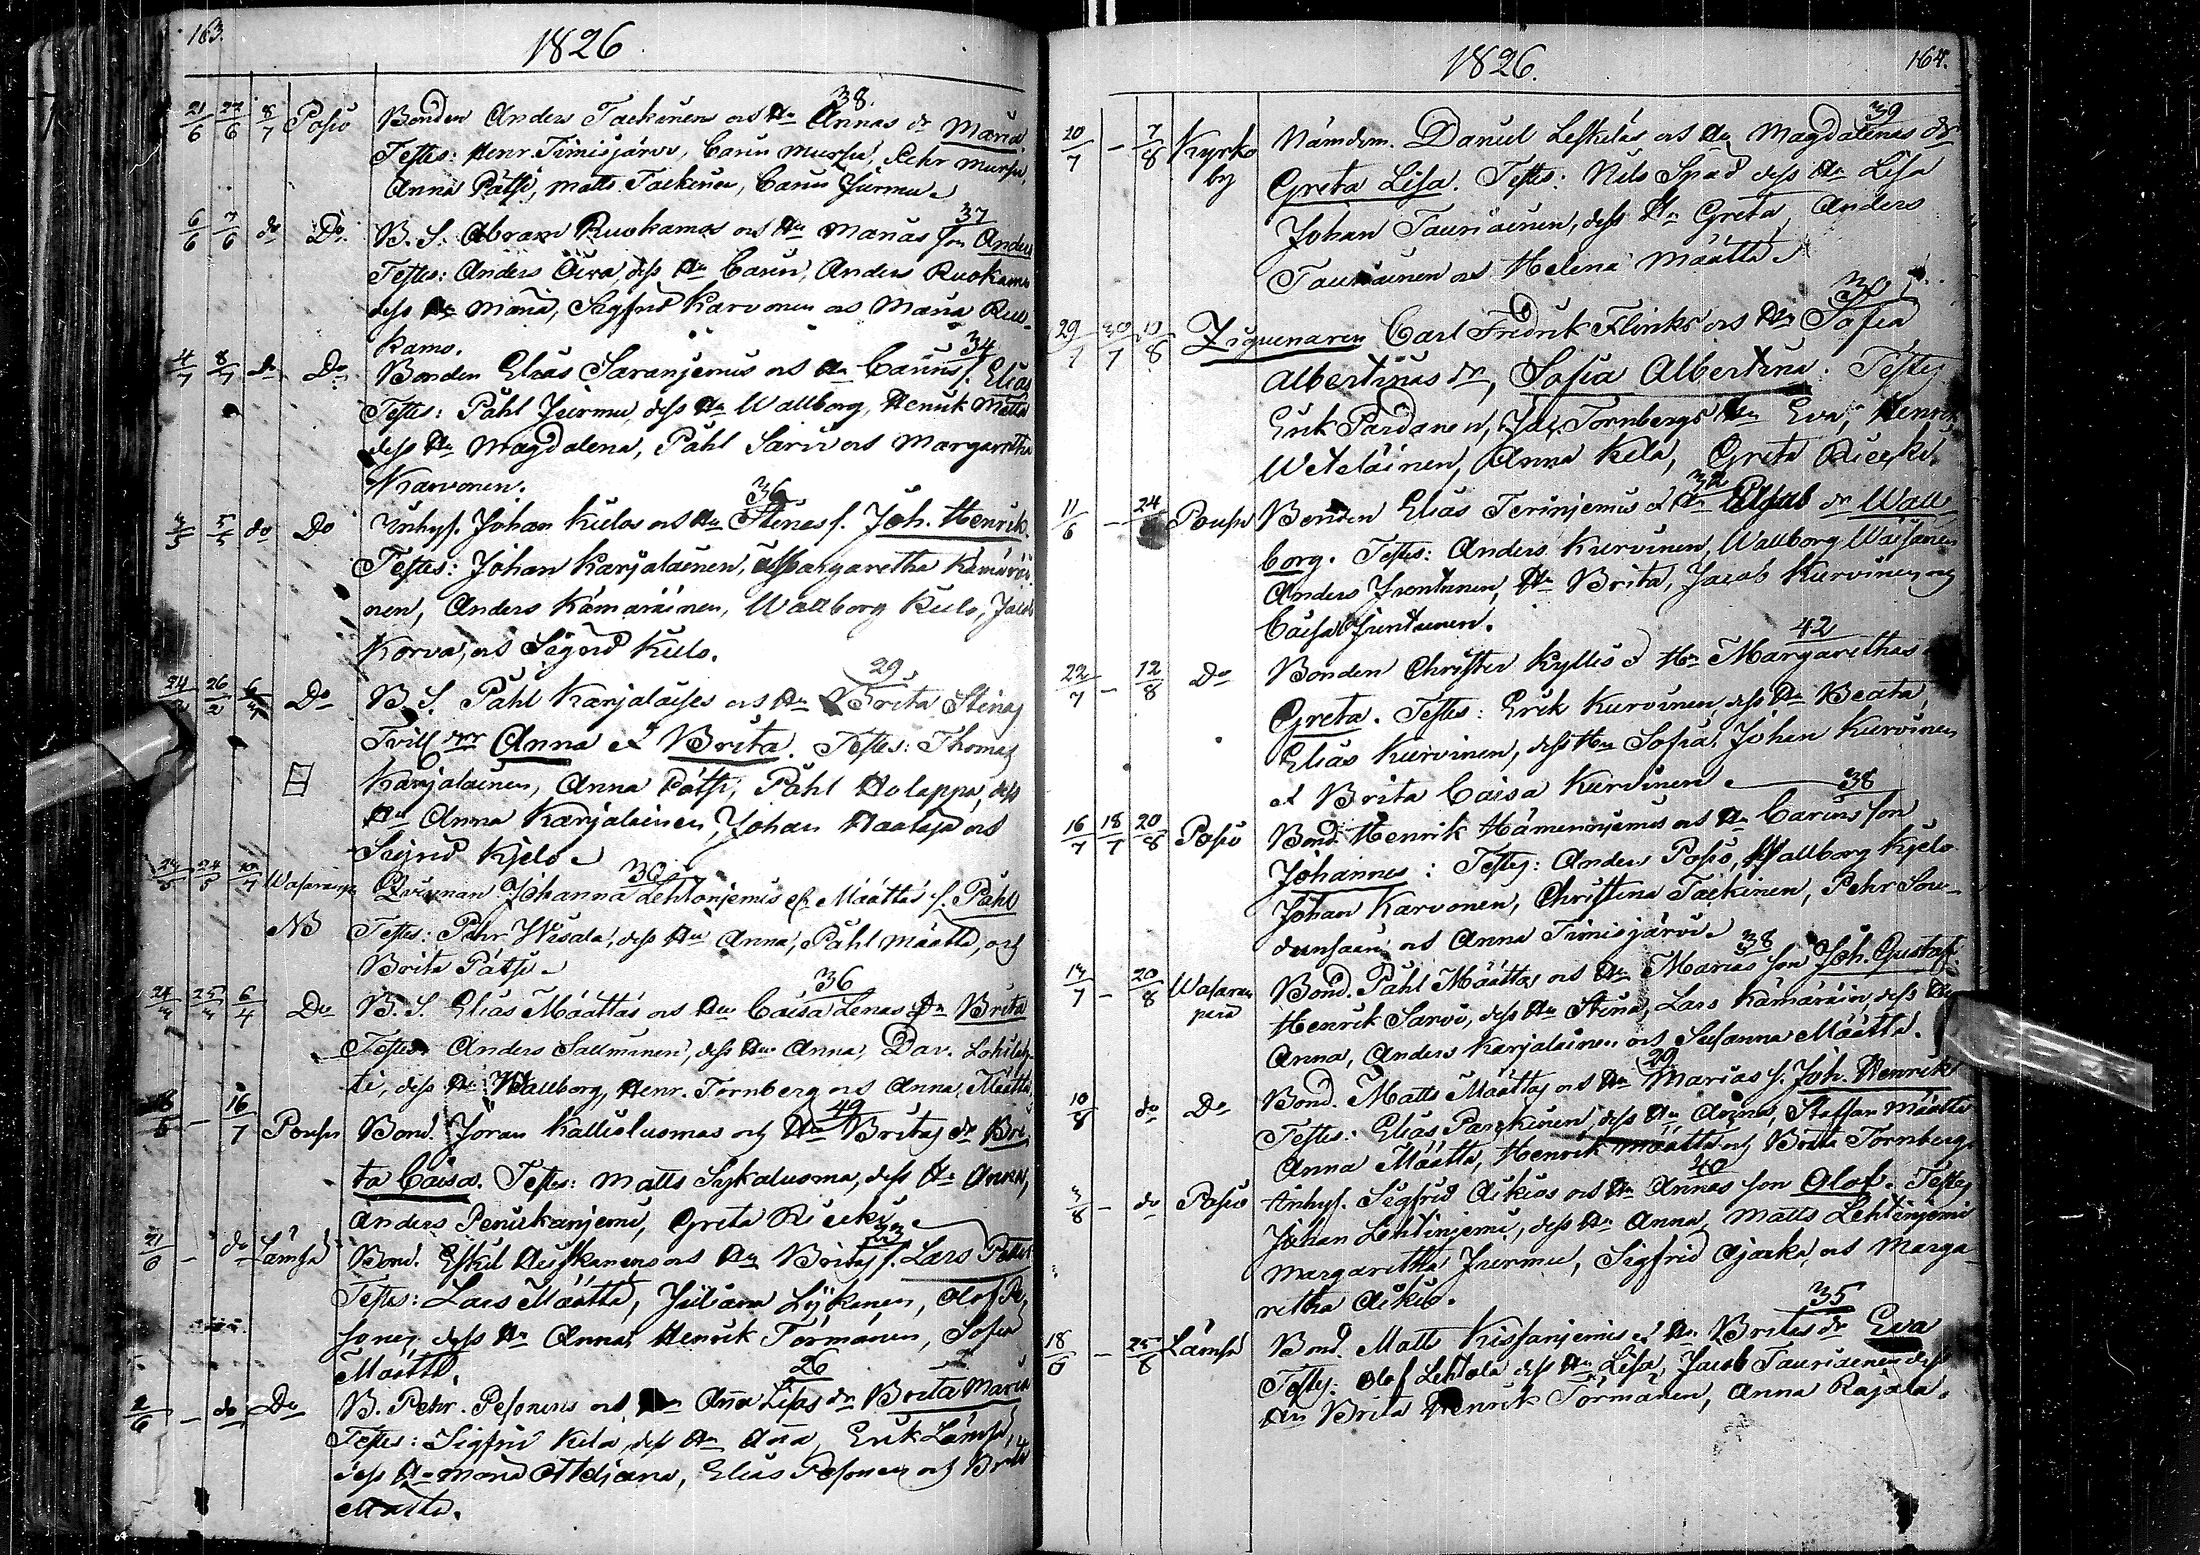 163.
1826
38.
21/6 27/6 8/7 Posio Bonden Anders Taekinens os Hu Annas dr Maria.
Testes: Henr. Timisjärvi, Carin Mursu, Pehr Mursu,
Anna Pätsi, Matts Taekinen, Carin Jurmu
37
6/6 7/6 do Do. B. S. Abram Ruokamos os Hu Marias son Anders
Testes: Anders Oiva, dess Hu Carin, Anders Ruokamo
dess Hu Maria, Sigfrid Karvonen os Maria Ruo-
kamo.
34
4/7 8/7 do Do Bonden Elias Saranjemis os Hu Carins s. Elias
Testes: Påhl Jurmu, dess Hu Wallborg, Henrik Määttä
dess Hu Magdalena, Påhl Sarvi os Margaretha
Karvonen.
36
5/5 do Do Inhys. Johan Kielos os Hu Stinas s. Joh. Henrik.
Testes: Johan Karjalainen, Margaretha Kämäräi-
nen, Anders Kämäräinen, Wallborg Kielo, Jacob
Korva, os Sigrid Kielo.
29
24/2 26/2 Do B. S. Påhl Karjalaises os Hu Brita Stinas
Tvill. drr Anna et Brita. Testes: Thomas
Karjalainen, Anna Pätsi, Påhl Holappa, dess
Hu Anna Karjalainen, Johan Haataja os
Sigrid Kjelo
30
24/5 10/7 Qvinnan Johanna Lehtonjemis Määttäs s. Påhl
NB Testes: Pehr Wisala, dess Hu Anna, Påhl Määttä, och
Brita Pätsi
36
6/4 Do B. S. Elias Määttäs os Hu Caisa Lenas dr Brita
Testes: Anders Salminen, dess Hu Anna, Dav. Lohilah-
ti, dess Hu Wallborg, Henr. Tornberg os Anna Määttä
42
– 16/7 Pousu Bond. Jöran Kallioluomas och Hu Britas dr Bri-
ta Caisa. Testes: Matts Sykaluoma, dess Hu Anna,
Anders Penikanjemi, Greta Riecki
21/6 – do Lämsä Bond. Eskil Heiskanens os Hu Britas s. Lars Petter
Testes: Lars Määttä, Juliana Lÿkänen, Olof Pe-
sonen, dess Hu Anna, Henrik Törmänen, Sofia
Määttä.
26
2/6 – do Do B. Pehr Pesonens os Hu Anna Lisas dr Brita Maria
Testes: Sigfrid Kela, dess Hu Anna, Erik Lämsä,
dess Hu Maria, Elias Pesonen och Brita
Määttä.
1826.
164.
39
20/7 – 7/8 Kyrko Nämdem. Daniel Leskeläs os Hu Magdalenas dr
by Greta Lisa. Testes: Nils Spad dess Hu Lisa
Johan Tauriainen, dess Hu Greta, Anders
Tauriainen os Helena Määttä
30
29/7 30/7 10/8 Ziguenaren Carl Fredrik Flinks os Hu Sofia
Albertinas dr, Sofia Albertina. Testes
Erik Pardanen, Jac. Tornbergs Hu Eva, Henrik
Weteläinen, Anna Kela, Greta Riecki.
32
11/6 – 24 Pousu Bonden Elias Terinjemis et Hu dr Wall-
borg. Testes: Anders Kurvinen, Wallborg Waisanen
Anders Juntunen, Hu Brita, Jacob Kurvinen och
Caisa Juntunen.
42
22/7 – 12/8 Do Bonden Christer Kyllis et Hu Margarethas
Greta. Testes: Erik Kurvinen, dess Hu Beata,
Elias Kurvinen, dess Hu Sofia, Johan Kurvinen
et Brita Caisa Kurvinen
38
16/7 18/7 20/8 Posio Bond. Henrik Hämeenjemis os Hu Carins son
Johannes: Testes: Anders Posio, Wallborg Kjelo
Johan Karvonen, Christina Taekinen, Pehr Sou-
dunsaari os Anna Timisjärvi
38
14/7 – 20/8 Wasaran Bond. Påhl Määttäs os Hu Marias son Joh. Gustaf.
perä Henrik Sarvi, dess Hu Stina, Lars Kämäräin, dess Hu
Anna, Anders Karjalainen os Susanna Määttä.
29
10/8 do Do Bond. Matts Määttäs os Hu Marias s. Joh. Henrik
Testes: Elias Parckinen, dess Hu Anna, Staffan Määttä
Anna Määttä, Henrik Määttä och Brita Tornberg.
40
– do Posio Inhys. Sigfrid Aikios os Hu Annas son Olof. Testes
Johan Lehtinjemi, dess Hu Anna, Matts Lehtinjemi
Margaretha Jurmu, Sigfrid Ajaska, os Marga-
retha Aikio.
35
18/6 – 25/6 Lämsä Bond. Matts Kissanjemis et Hu Britas dr Eva
Testes: Olof Lehtola dess Hu Lisa, Jacob Tauriainen dess
Hu Brita Henrik Törmänen, Anna Rajala.